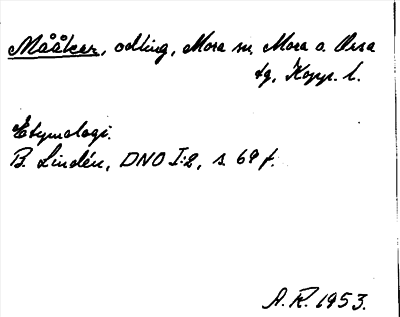 Mååker, odling, Mora sn, Mora o. Orsa
tg, Kopp. l.
Etymologi.
B. Lindén, DNO I:2, s. 69 f.
A.R. 1953.